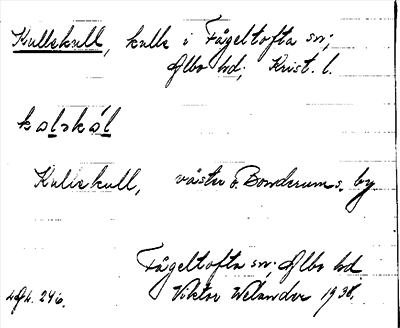 Kullekull, kulle i Fågeltofta sn;
Albo hd; Krist. l.
Kullekull, väster o. Bondrums by
Fågeltofta sn; Albo hd.
Viktor Welander 1938.